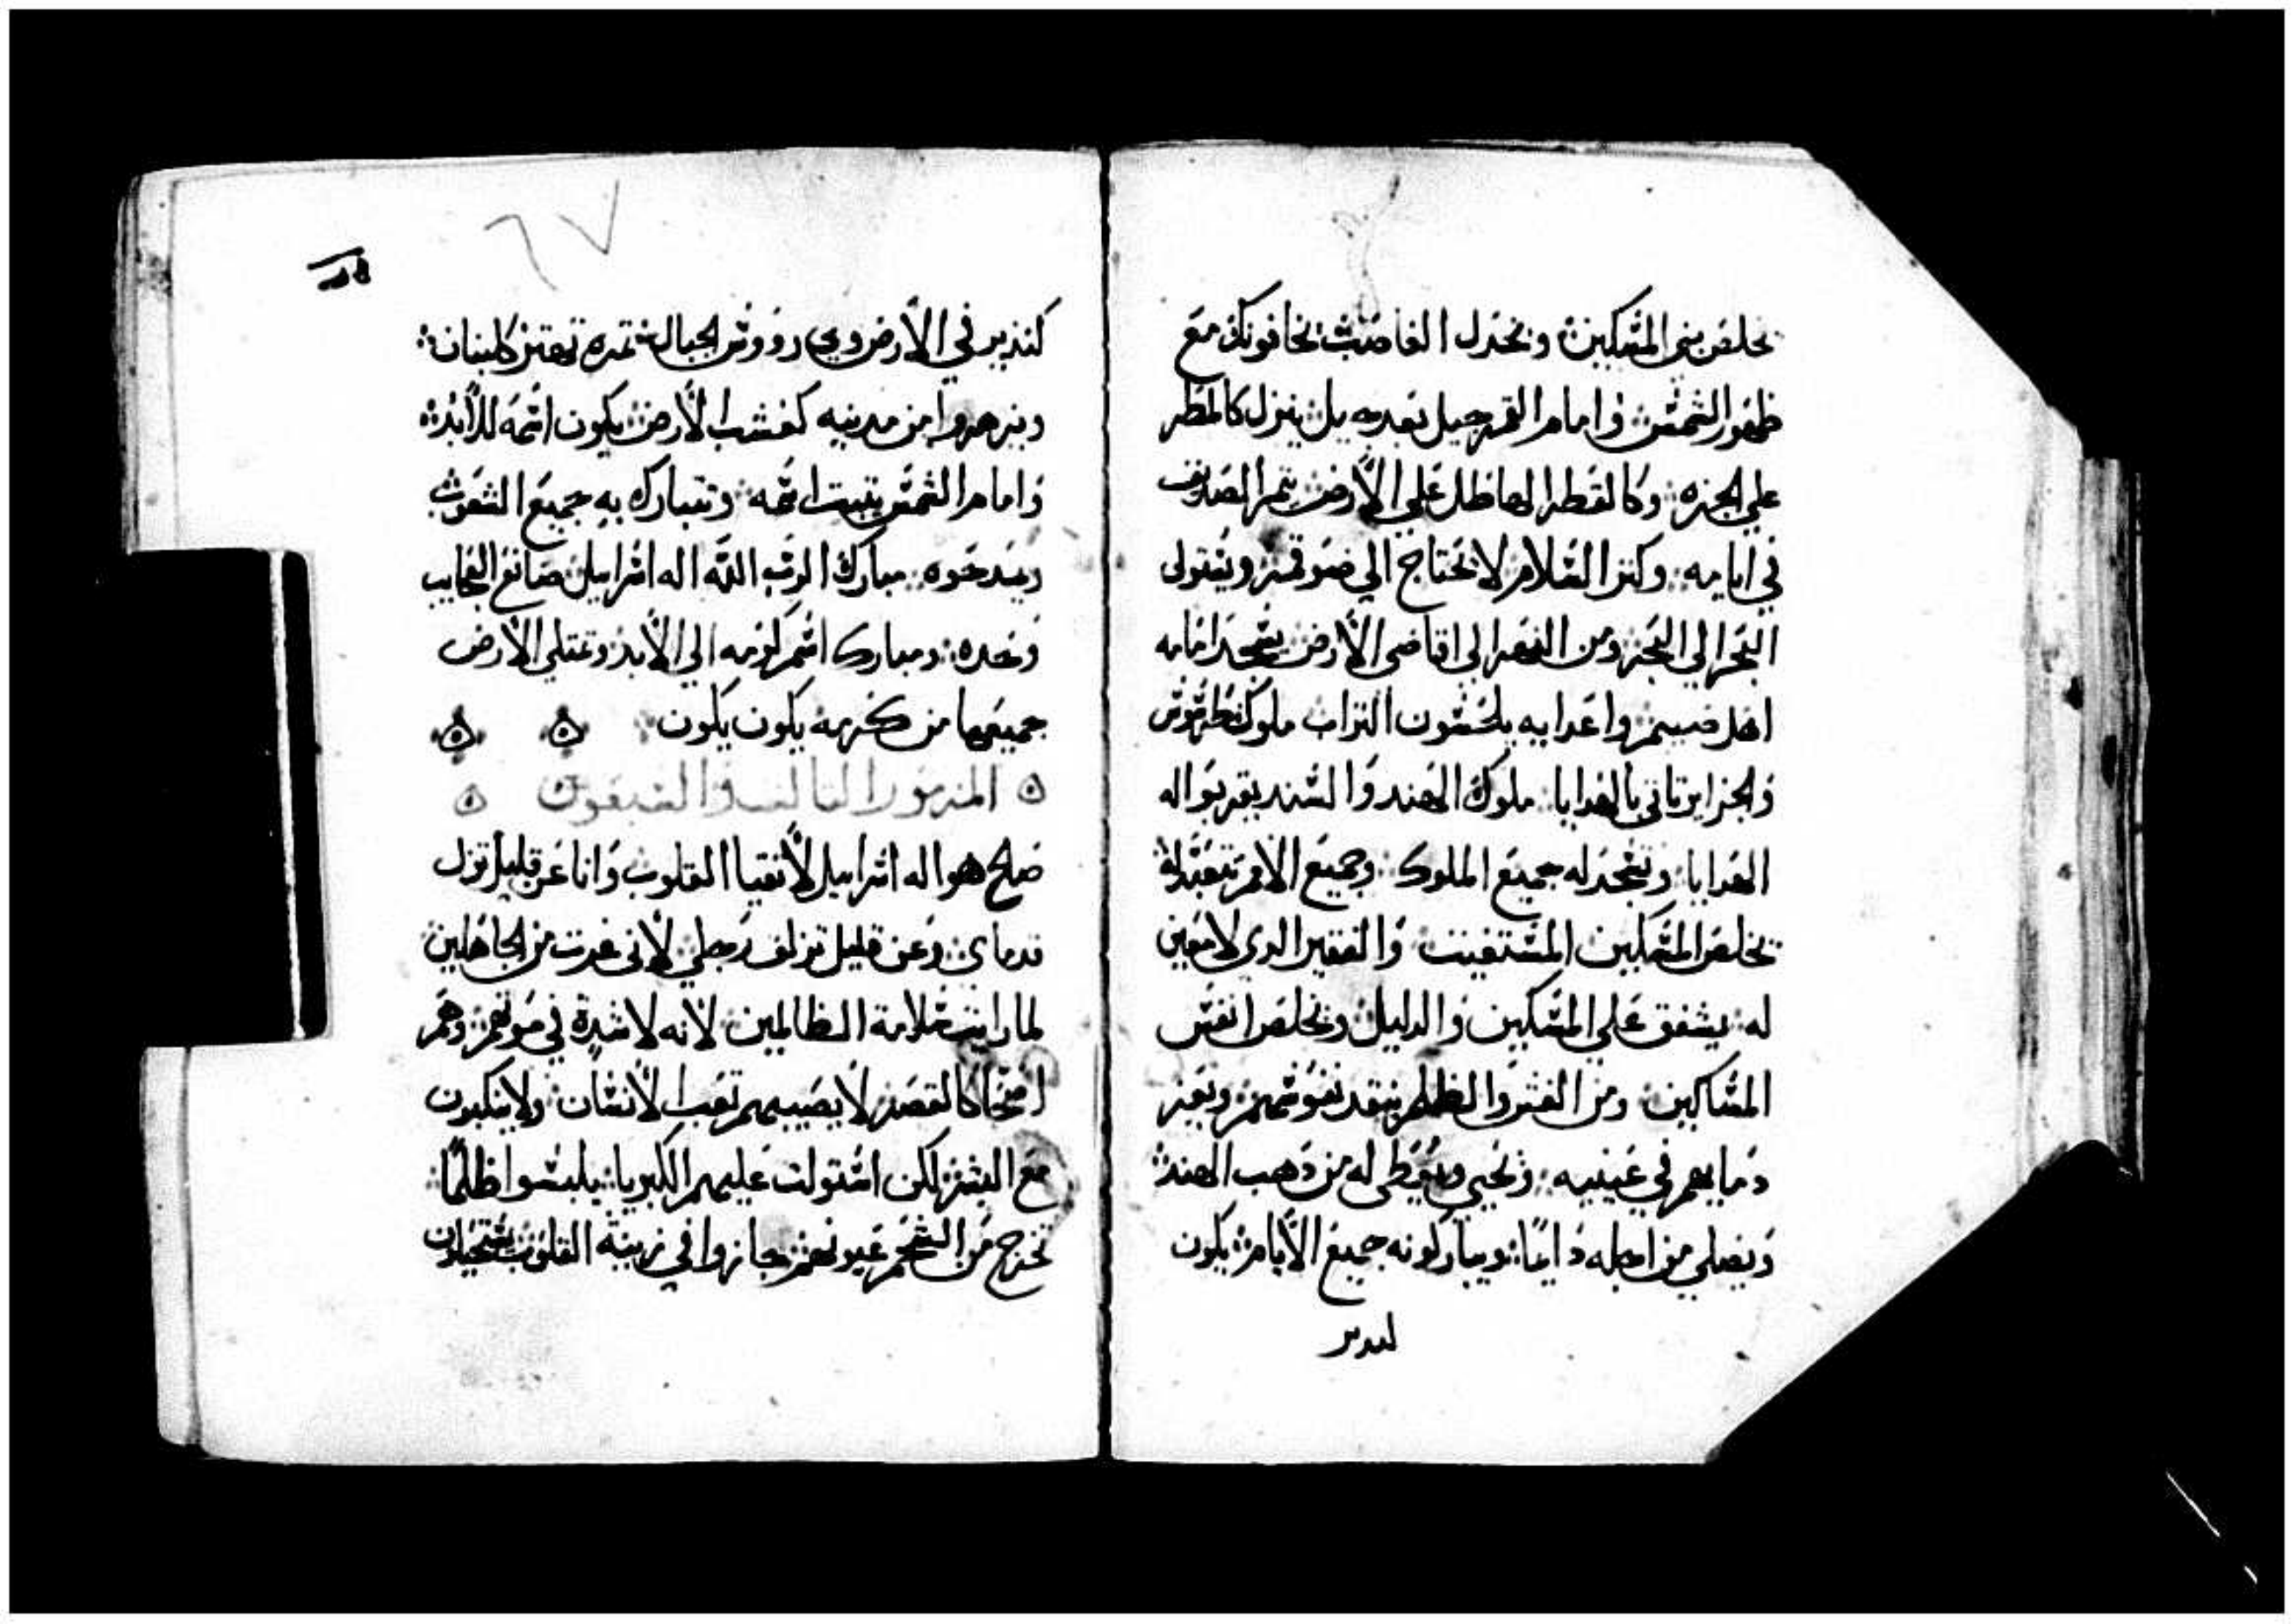 يخلص بني المسكين ويخدل الغاصب يخافونك مع
ظهور الشمس وامام القمر جيل بعد جيل ينزل كالمطر
علي الجزه وكالقطر الهاطل علي الأرض يثمر الصديق
في ايامه وكنز السلام لا يحتاج الي ضو قمر ويستولى
البحر الي البحر ومن النهر الي اقاصى الأرض يسجد امامه
اهل صيم واعدايه يلحسون التراب ملوك طرسوس
والجزاير تاتي بالهدايا ملوك الهند والسند يقربوا له
الهدايا وتسجد له جميع الملوك وجميع الامم تتعبد له
يخلص المسكين المستغيث والفقير الدى لا معين
له يشفق علي المسكين والدليل ويخلص انفس
المساكين ومن الغش والظلم ينقد نفوسهم ويعز
دمايهم في عينيه ويحيي ويعطى له من دهب الهند
ويصلي من اجله دايمًا ويباركونه جميع الأيام يكون
في الأرض وعلي رووس الجبال ثمره تهتز كلبنان
ويزهروا من مدينه كعشب الأرض يكون اسمه للأبد
وامام الشمس يثبت اسمه وتتبارك به جميع الشعوب
ويمدحوه مبارك الرب الله اله اسراييل صانع العجايب
وحده ومبارك اسم كرمه الي الأبد وتمتلي الأرض
جميعها من كرمه يكون يكون
المزمور الثالث والسبعون
صالح هو اله اسراييل لأنقيا القلوب وانا عن قليل تزل
قدماي وعن قليل تزلف رجلي لأنى غرت من الجاهلين
لما رايت سلامة الظالمين لأنه لا شدة في موتهم وهم
اصحا كالقصر لا يصيبهم تعب الأنسان ولا ينكبون
مع البشر لكن استولت عليهم الكبريا يلبسوا ظلمًا
تخرج من الشحم عيونهم جازوا في زينة القلوب